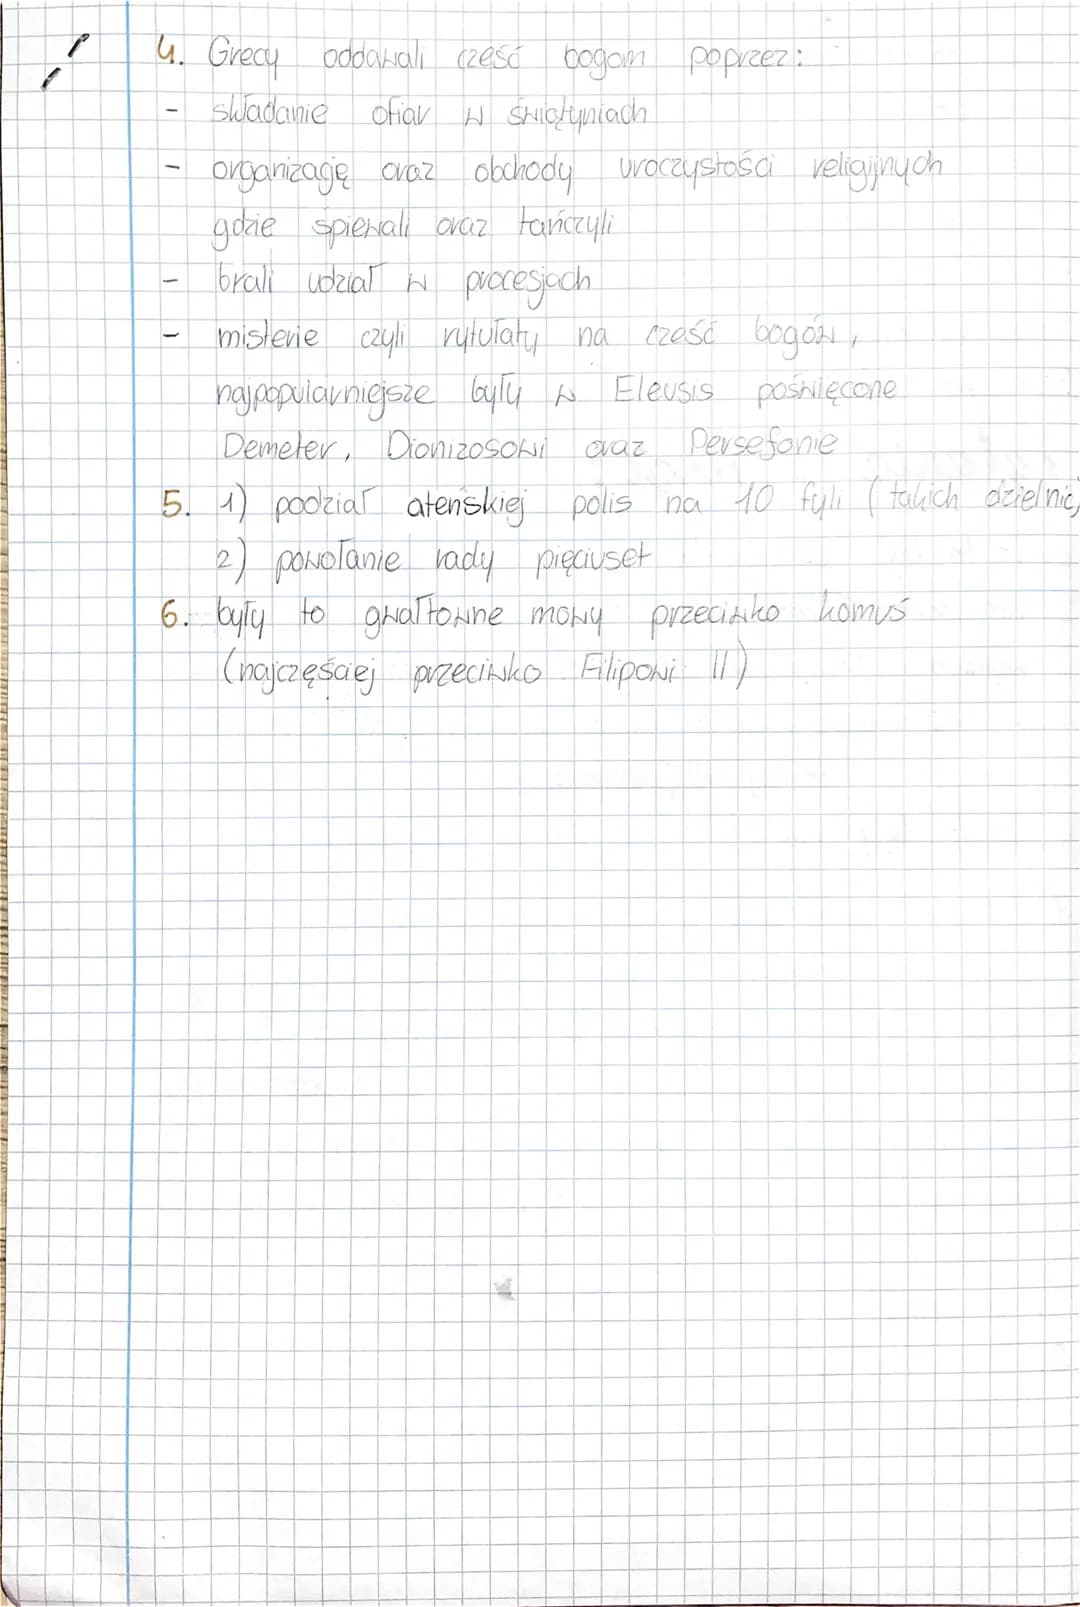 4. Grecy oddawali cześć bogom poprzez:
- składanie ofiar w świątyniach
- organizację oraz obchody uroczystości religijnych
gdzie śpiewali oraz tańczyli
- brali udział w procesjach
- misterie czyli rytułaty na cześć bogów,
najpopularniejsze były w Eleusis poświęcone
Demeter, Dionizosowi oraz Persefonie
5. 1) podział ateńskiej polis na 10 fyli (takich dzielnic)
2) powołanie rady pięciuset
6. były to gwałtowne mowy przeciwko komuś
(najczęściej przeciwko Filipowi II)